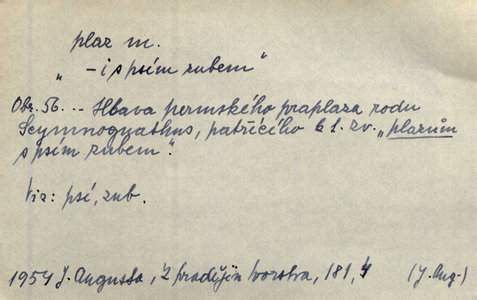 plaz m.
„ - i s psím zubem“
Obr. 56. -- Hlava permského praplaza rodu
Scymnognathus, patřícího k t. zv. „plazům
s psím zubem“.
Viz: psí, zub.
1954 J. Augusta, Z pradějin tvorstva, 181, (J. Aug.)